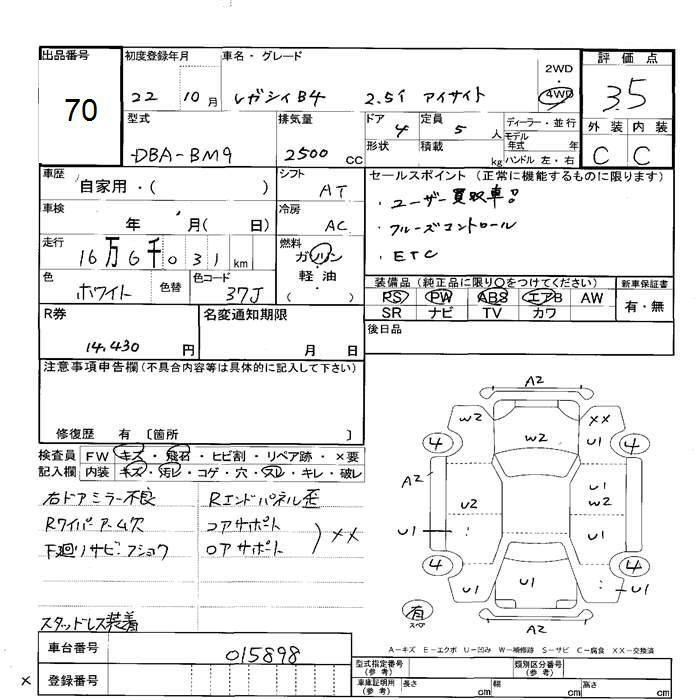 出品番号
70
初度登録年月
22 10月
車名・グレード
レガシィB4 2.5i アイサイト
2WD
・
4WD
評価点
3.5
外装 内装
C C
型式
DBA-BM9
排気量
2500 CC
ドア 4
定員 5 人
形状
積載 kg
ディーラー・並行
モデル年式 年
ハンドル 左・右
車歴
自家用・( )
シフト
AT
セールスポイント (正常に機能するものに限ります)
・ユーザー買取車!!
・クルーズコントロール
・ETC
車検
年 月( 日)
冷房
AC
走行
16万6千031km
燃料
ガソリン
・
軽油
( )
色
ホワイト
色替
色コード
37J
装備品 (純正品に限り○をつけてください)
PS PW ABS エアB AW
SR ナビ TV カワ
新車保証書
有・無
R券
14,430 円
名変通知期限
月 日
後日品
注意事項申告欄 (不具合内容等は具体的に記入して下さい)
修復歴 有 〔箇所 〕
検査員記入欄
FW キズ・飛石・ヒビ割・リペア跡・×要
内装 キズ・汚レ・コゲ・穴・スレ・キレ・破レ
右ドアミラー不良
Rワイパーアーム欠
下廻りサビ・フショク
スタッドレス装着
Rエンドパネル歪
コアサポート
ロアサポート
XX
A2
W2 XX
4 W2 U1 4
A2
U2 U1 W2
U1
4 4
U1 U1 U1
A2
有
スペア
A-キズ E-エクボ U-凹み W-補修跡 S-サビ C-腐食 XX-交換済
車台番号
015898
登録番号
×
型式指定番号(参考)
類別区分番号(参考)
車庫証明用(参考)
長さ cm 幅 cm 高さ cm